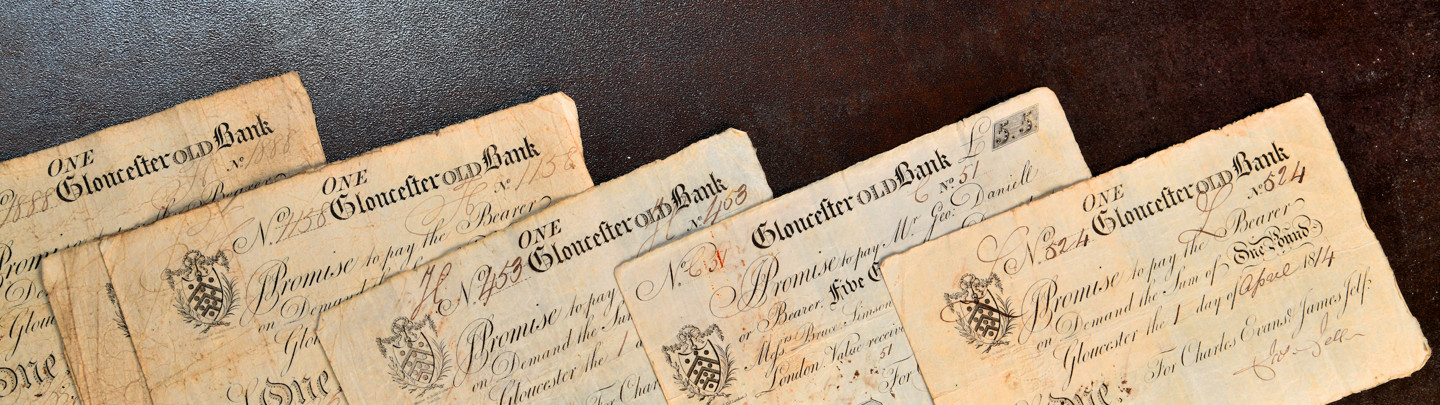 ONE
Gloucester OLD Bank
No 1888
1888
Bearer
Promis
Glou
One
ONE
No. 1158 Gloucester OLD Bank
No 1158
Promise to pay the Bearer
on Demand
Glo
One
ONE
No. 453 Gloucester OLD Bank
No 453
Promise to pay
on Demand the Su
Gloucester the 1
For Cha
Gloucester OLD Bank £ 5.5
No 51
No.
Promise to pay Mr. Geo: Daniell
or Bearer, Five
Messrs Bruce Simson
London. Value receiv
51
For
ONE
No. 524 Gloucester OLD Bank
No 524
Promise to pay the Bearer
on Demand the Sum of One Pound
Gloucester the 1 day of April 1814
For Charles Evans & James Jelf:
One